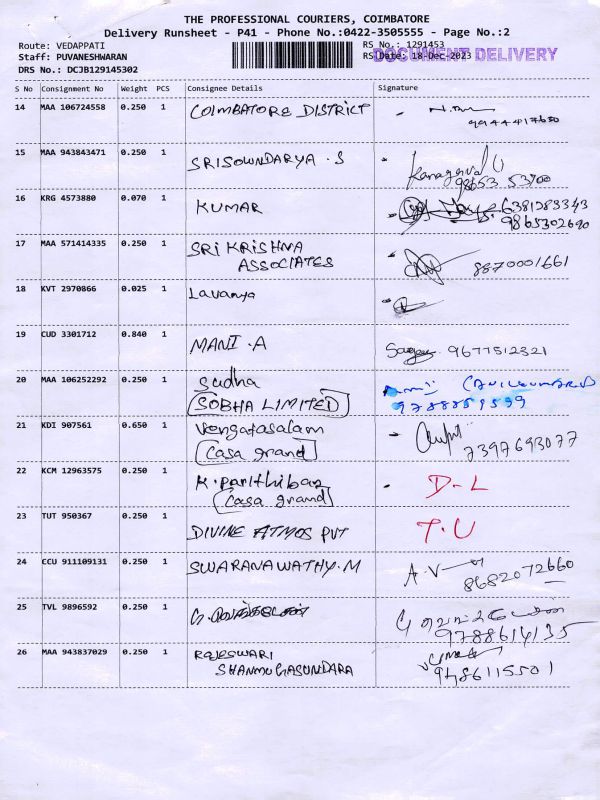 THE PROFESSIONAL COURIERS, COIMBATORE
Delivery Runsheet - P41 - Phone No.:0422-3505555 - Page No.:2
Route: VEDAPPATI
RS No.: 1291453
Staff: PUVANESHWARAN
RS Date: 18-Dec-2023
DOCUMENT DELIVERY
DRS No.: DCJB129145302
S No Consignment No Weight PCS Consignee Details Signature
14 MAA 106724558 0.250 1 COIMBATORE DISTRICT
9944417630
15 MAA 943843471 0.250 1 SRISOWNDARYA . S
98653 53700
16 KRG 4573880 0.070 1 KUMAR 6381283343
9865302690
17 MAA 571414335 0.250 1 SRI KRISHNA
ASSOCIATES 8870001661
18 KVT 2970866 0.025 1 Lavanya
19 CUD 3301712 0.840 1 MANI . A 9677512321
20 MAA 106252292 0.250 1 Sudha
SOBHA LIMITED
21 KDI 907561 0.650 1 Vengatasalam
Casa grand 7397693077
22 KCM 12963575 0.250 1 K. Parithiban D-L
Casa grand
23 TUT 950367 0.250 1 DIVINE ATMOS PVT T.U
24 CCU 911109131 0.250 1 SWARANAWATHY . M A.V
8682072660
25 TVL 9896592 0.250 1
9788614135
26 MAA 943837029 0.250 1 RAJESWARI
SHANMUGASUNDARA 9486115501